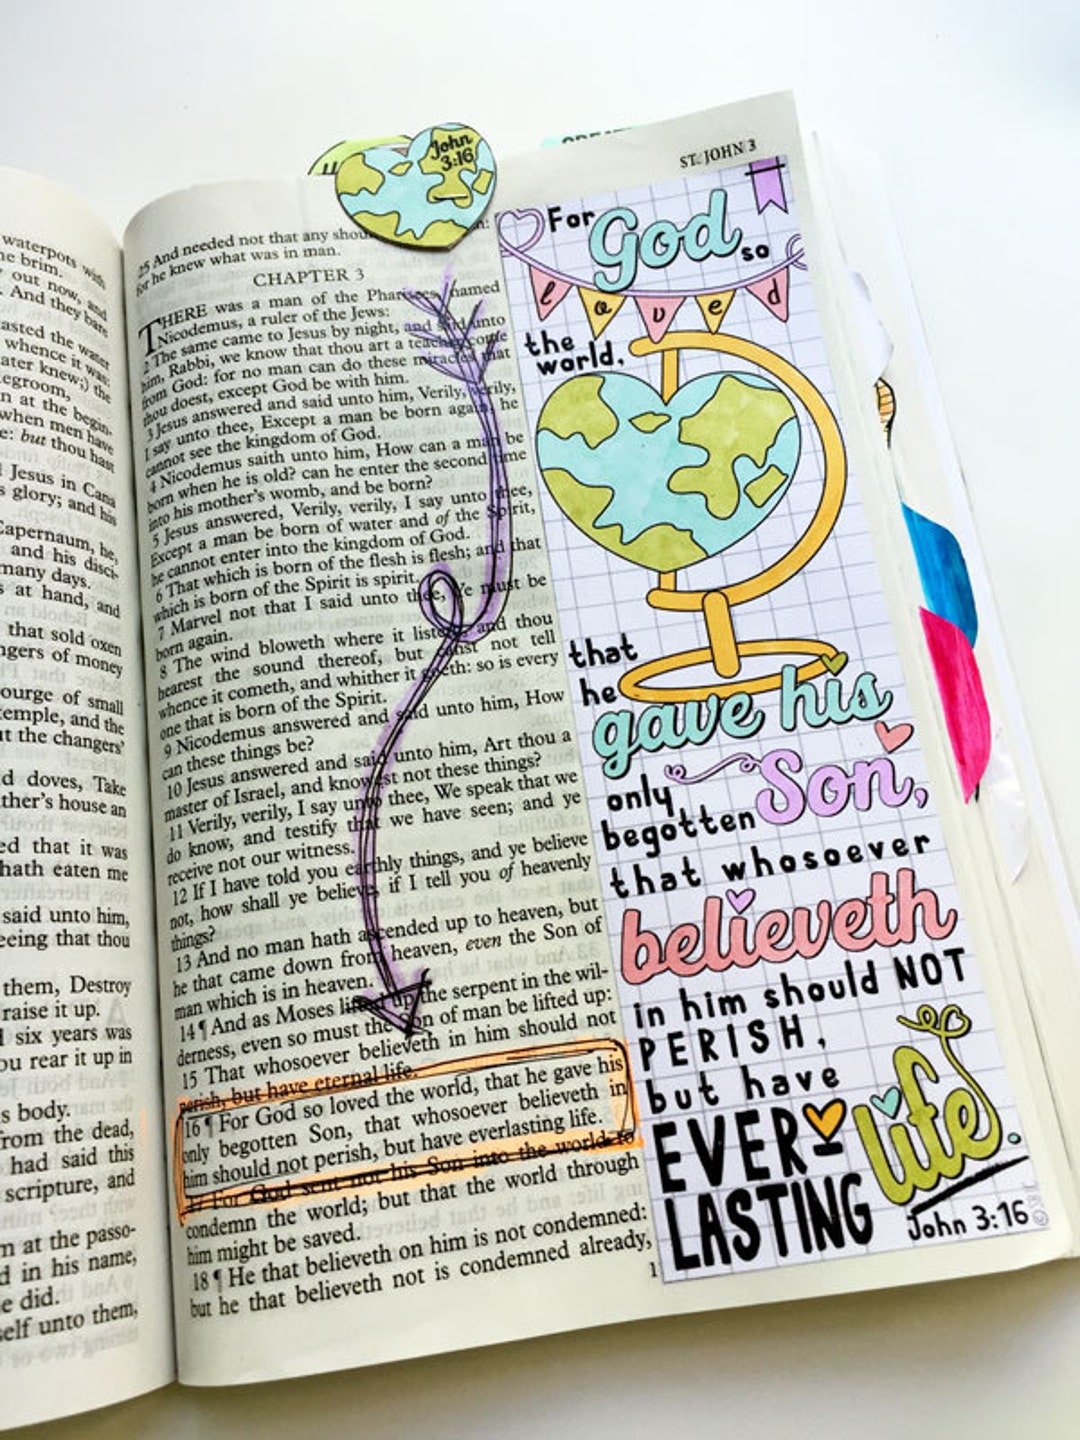 waterpots with
he brim.
out now, and
And they bare
asted the water
whence it was:
ater knew;) the
egroom,
n at the begin-
when men have
e: but thou hast
Jesus in Cana
s glory; and his
Capernaum, he,
and his disci-
many days.
s at hand, and
that sold oxen
ngers of money
ourge of small
temple, and the
ut the changers'
d doves, Take
ther's house an
ed that it was
hath eaten me
said unto him,
eeing that thou
them, Destroy
raise it up.
six years was
ou rear it up in
s body.
rom the dead,
had said this
scripture, and
m at the passo-
d in his name,
e did.
self unto them,
John
3:16
ST. JOHN 3
25 And needed not that any
for he knew what was in man.
CHAPTER 3
THERE was a man of the Pharisees, named
Nicodemus, a ruler of the Jews:
2 The same came to Jesus by night, and said unto
him, Rabbi, we know that thou art a teacher come
from God: for no man can do these miracles that
thou doest, except God be with him.
3 Jesus answered and said unto him, Verily, verily,
I say unto thee, Except a man be born again, he
cannot see the kingdom of God.
4 Nicodemus saith unto him, How can a man be
born when he is old? can he enter the second time
into his mother's womb, and be born?
5 Jesus answered, Verily, verily, I say unto thee,
Except a man be born of water and of the Spirit,
he cannot enter into the kingdom of God.
6 That which is born of the flesh is flesh; and that
which is born of the Spirit is spirit.
7 Marvel not that I said unto thee, Ye must be
born again.
8 The wind bloweth where it listeth, and thou
hearest the sound thereof, but canst not tell
whence it cometh, and whither it goeth: so is every
one that is born of the Spirit.
9 Nicodemus answered and said unto him, How
can these things be?
10 Jesus answered and said unto him, Art thou a
master of Israel, and knowest not these things?
11 Verily, verily, I say unto thee, We speak that we
do know, and testify that we have seen; and ye
receive not our witness.
12 If I have told you earthly things, and ye believe
not, how shall ye believe, if I tell you of heavenly
things?
13 And no man hath ascended up to heaven, but
he that came down from heaven, even the Son of
man which is in heaven.
14 ¶ And as Moses lifted up the serpent in the wil-
derness, even so must the Son of man be lifted up:
15 That whosoever believeth in him should not
perish, but have eternal life.
16 ¶ For God so loved the world, that he gave his
only begotten Son, that whosoever believeth in
him should not perish, but have everlasting life.
17 For God sent not his Son into the world to
condemn the world; but that the world through
him might be saved.
18 ¶ He that believeth on him is not condemned:
but he that believeth not is condemned already,
For God so
loved
the
world,
that
he
gave his
only
begotten Son,
that whosoever
believeth
in him should NOT
PERISH,
but have
EVER-
LASTING life.
John 3:16